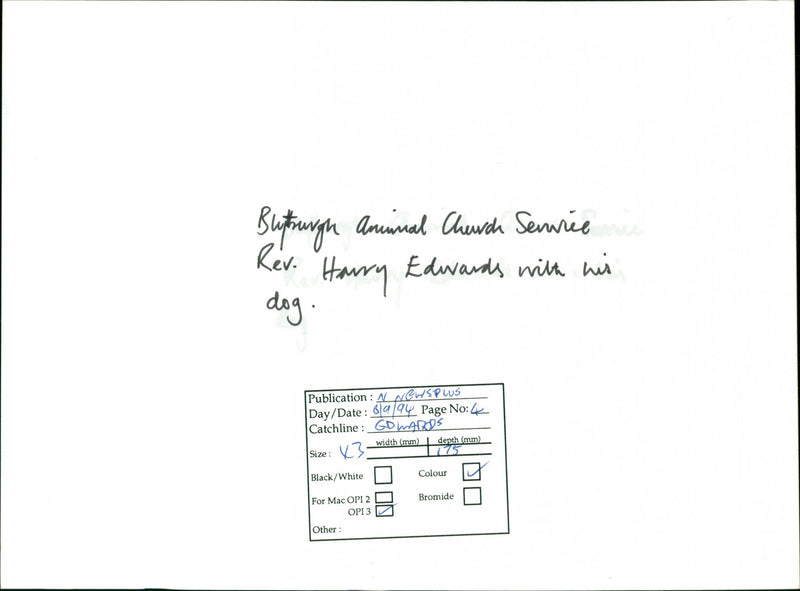 Blythburgh Animal Church Service
Rev. Harry Edwards with his
dog.
Publication : N NEWSPLUS
Day/Date : 8/9/94 Page No: 4
Catchline : EDWARDS
Size : x3 width (mm) depth (mm) 175
Black/White Colour ✓
For Mac OPI 2 Bromide
OPI 3 ✓
Other :